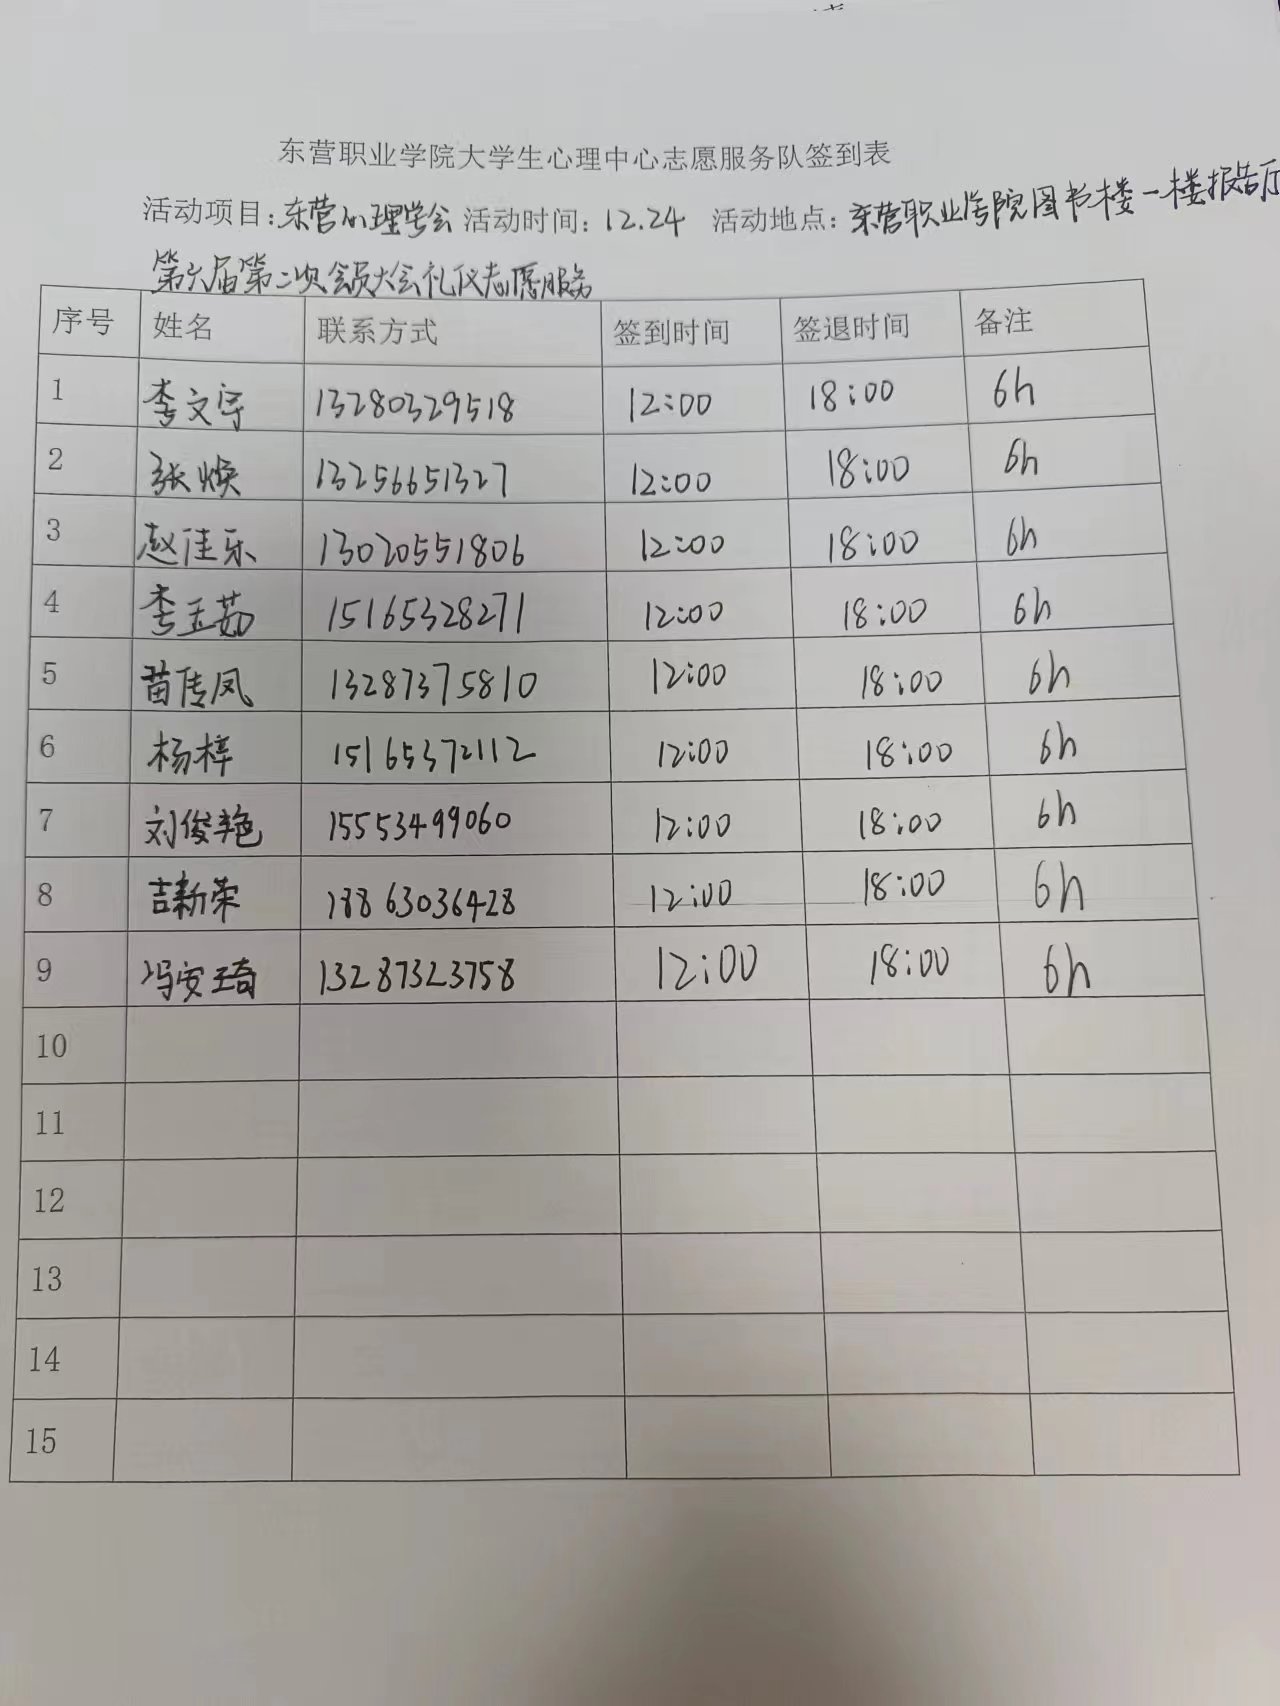 东营职业学院大学生心理中心志愿服务队签到表
活动项目:东营心理学会 活动时间:12.24 活动地点:东营职业学院图书楼一楼报告厅
第六届第二次会员大会礼仪志愿服务
序号 姓名 联系方式 签到时间 签退时间 备注
1 李文宇 13280329518 12:00 18:00 6h
2 张焕 13256651327 12:00 18:00 6h
3 赵佳乐 13020551806 12:00 18:00 6h
4 李玉茹 15165328271 12:00 18:00 6h
5 苗传凤 13287375810 12:00 18:00 6h
6 杨梓 15165372112 12:00 18:00 6h
7 刘俊艳 15553499060 12:00 18:00 6h
8 吉新荣 18863036428 12:00 18:00 6h
9 冯安琦 13287323758 12:00 18:00 6h
10
11
12
13
14
15